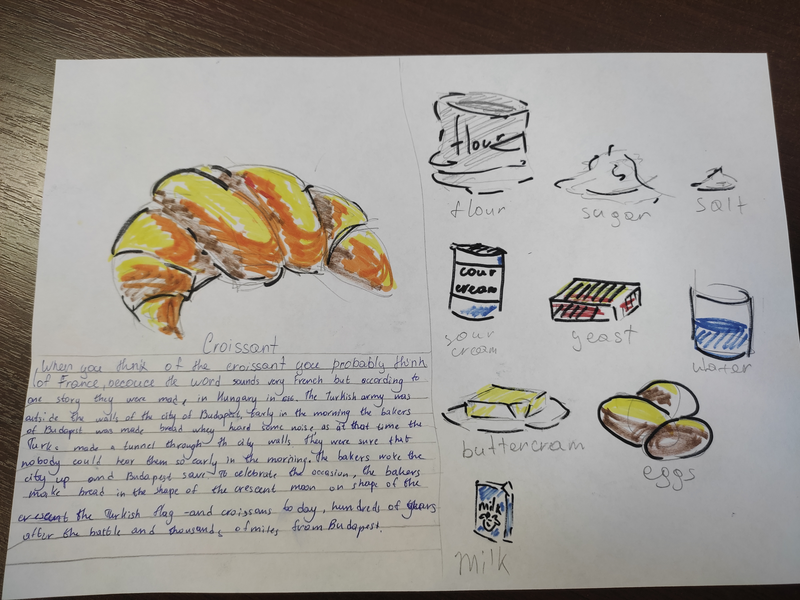 Croissant
When you think of the croissant you probably think
of France, becouce the word sounds very french but according to
one story they were made, in Hungary in The Turkish army was
outside the walls of the city of Budapest, Early in the morning the bakers
of Budapest was made bread whey heard some noise, as at that time the
Turks made a tunnel through th city walls, They were sure that
nobody could hear them so early in the morning. The bakers woke the
city up and Budapest save. To celebrate the occasion, the bakers
make bread in the shape of the crescent moon on shape of the
crescent the Turkish flag -and croissans to day, hundreds of years
after the battle and thousands of miles from Budapest.
flour
flour
sugar
salt
sour
cream
sour
cream
yeast
water
buttercream
eggs
milk
milk